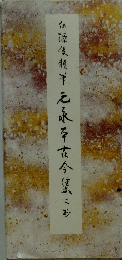 伝源俊頼筆 元永本古今集之抄